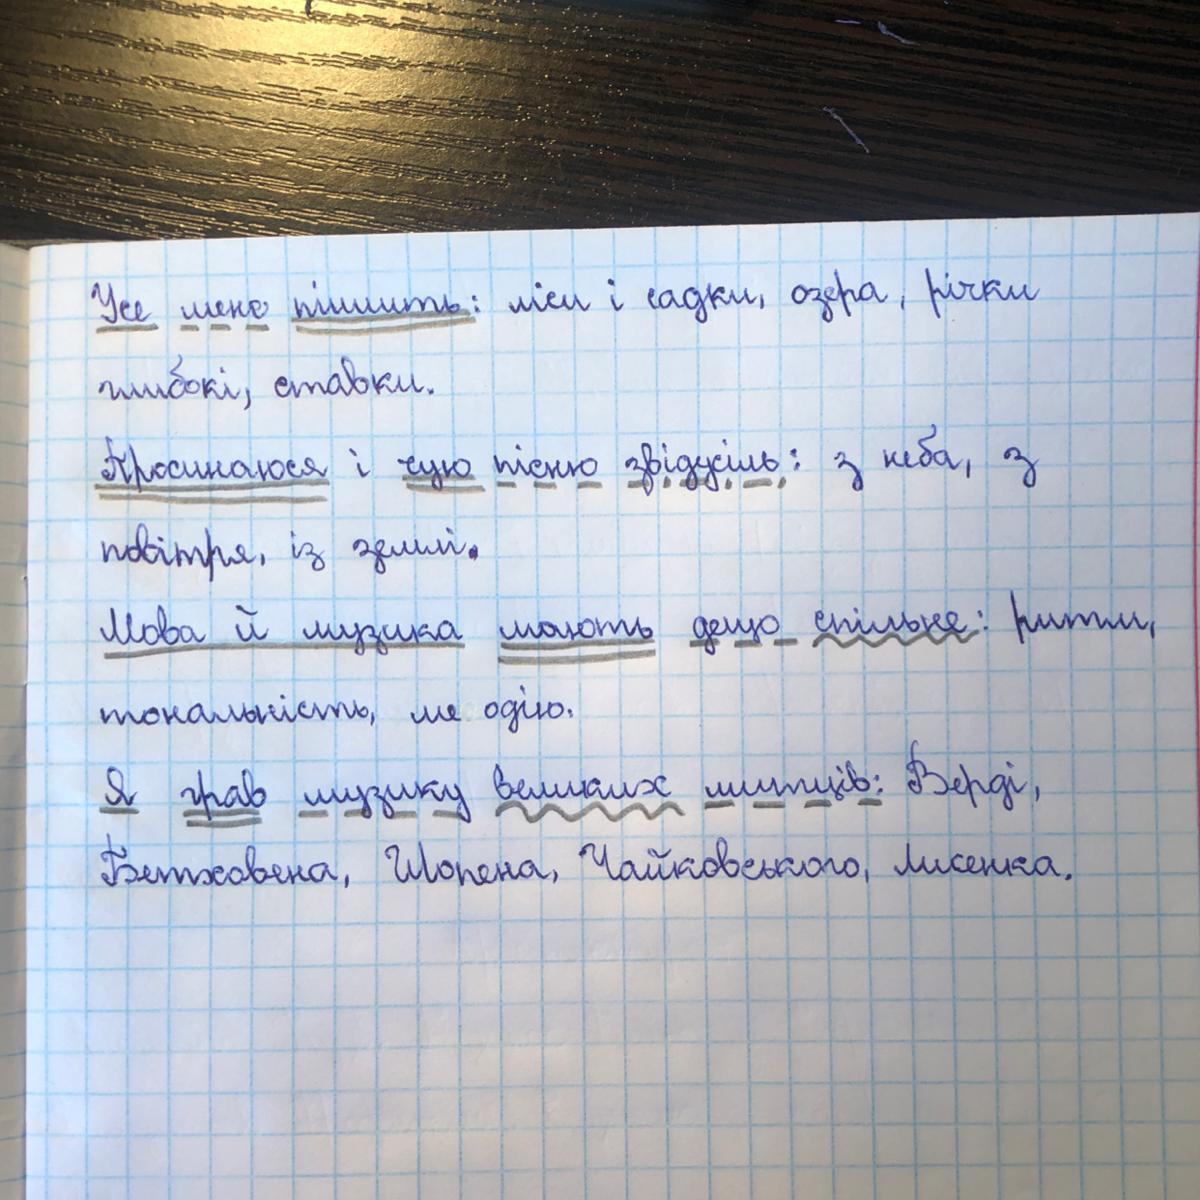 Усе мене пішить: ліси і садки, озера, річки
глибокі, ставки.
Просинаюся і чую пісню звідусіль: з неба, з
повітря, із землі.
Мова й музика мають дещо спільне: ритм,
тональність, ме одію.
Я грав музику великих митців: Верді,
Бетховена, Шопена, Чайковського, Лисенка.